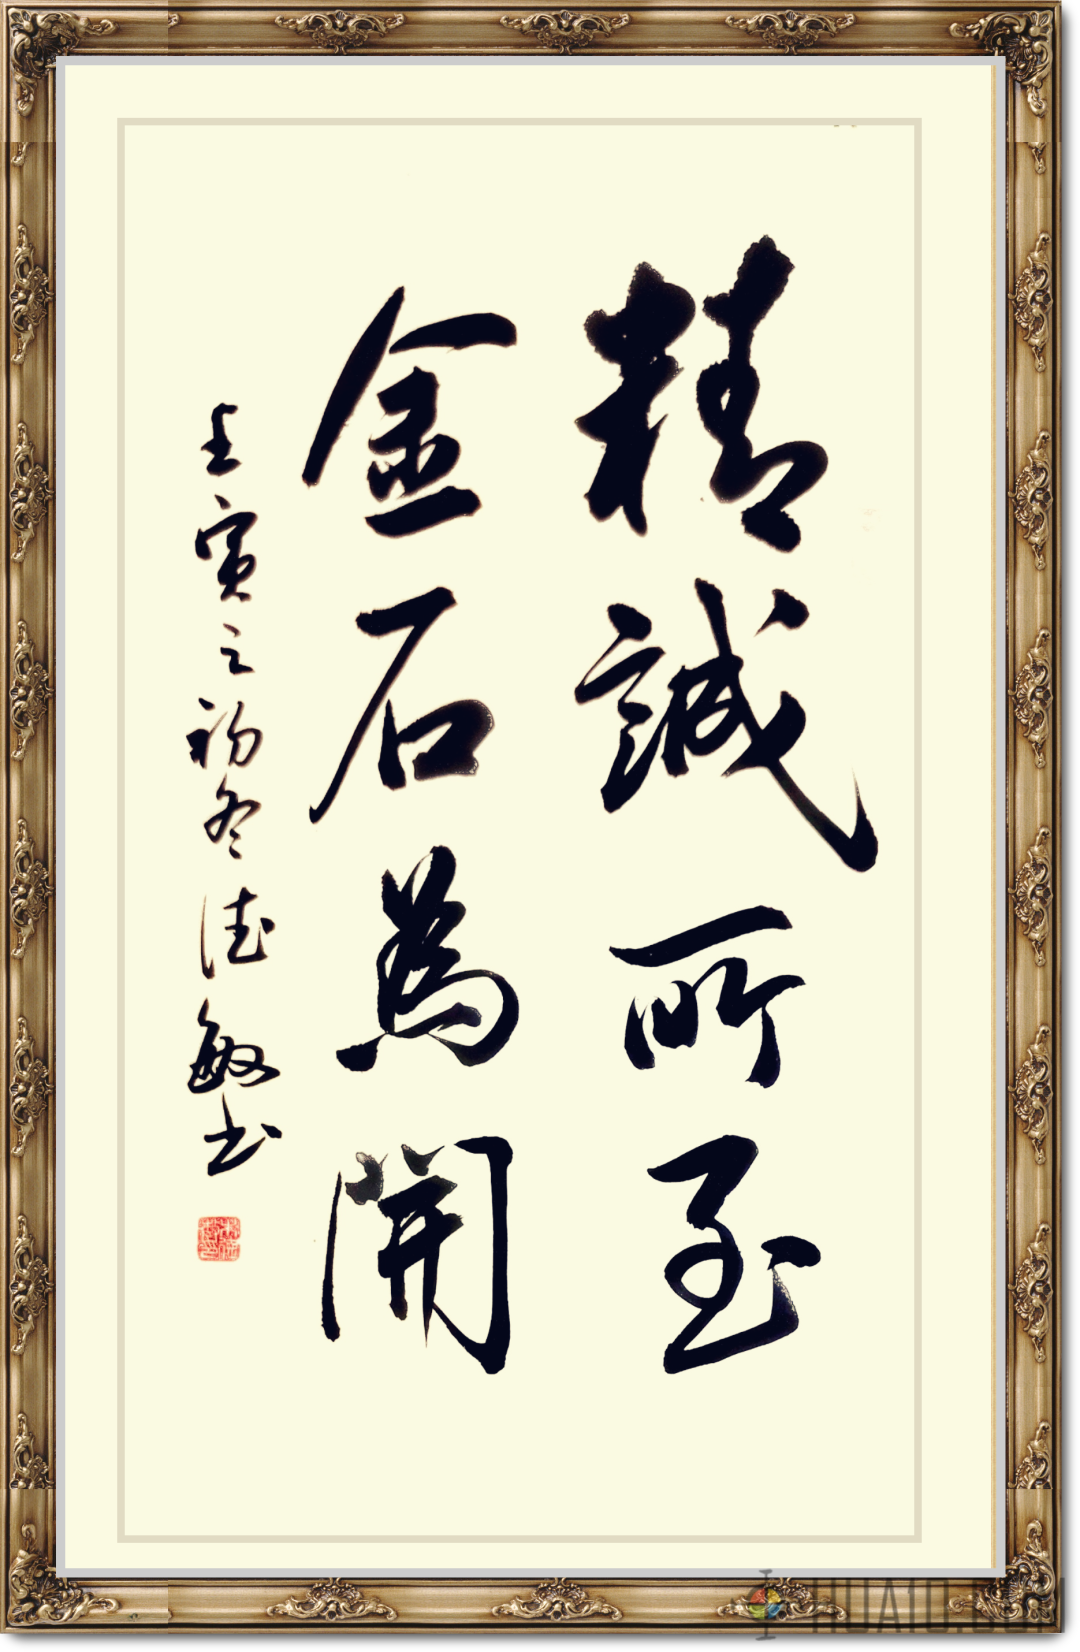 精誠所至
金石為開
壬寅之初冬德敏书
HUA10.COM